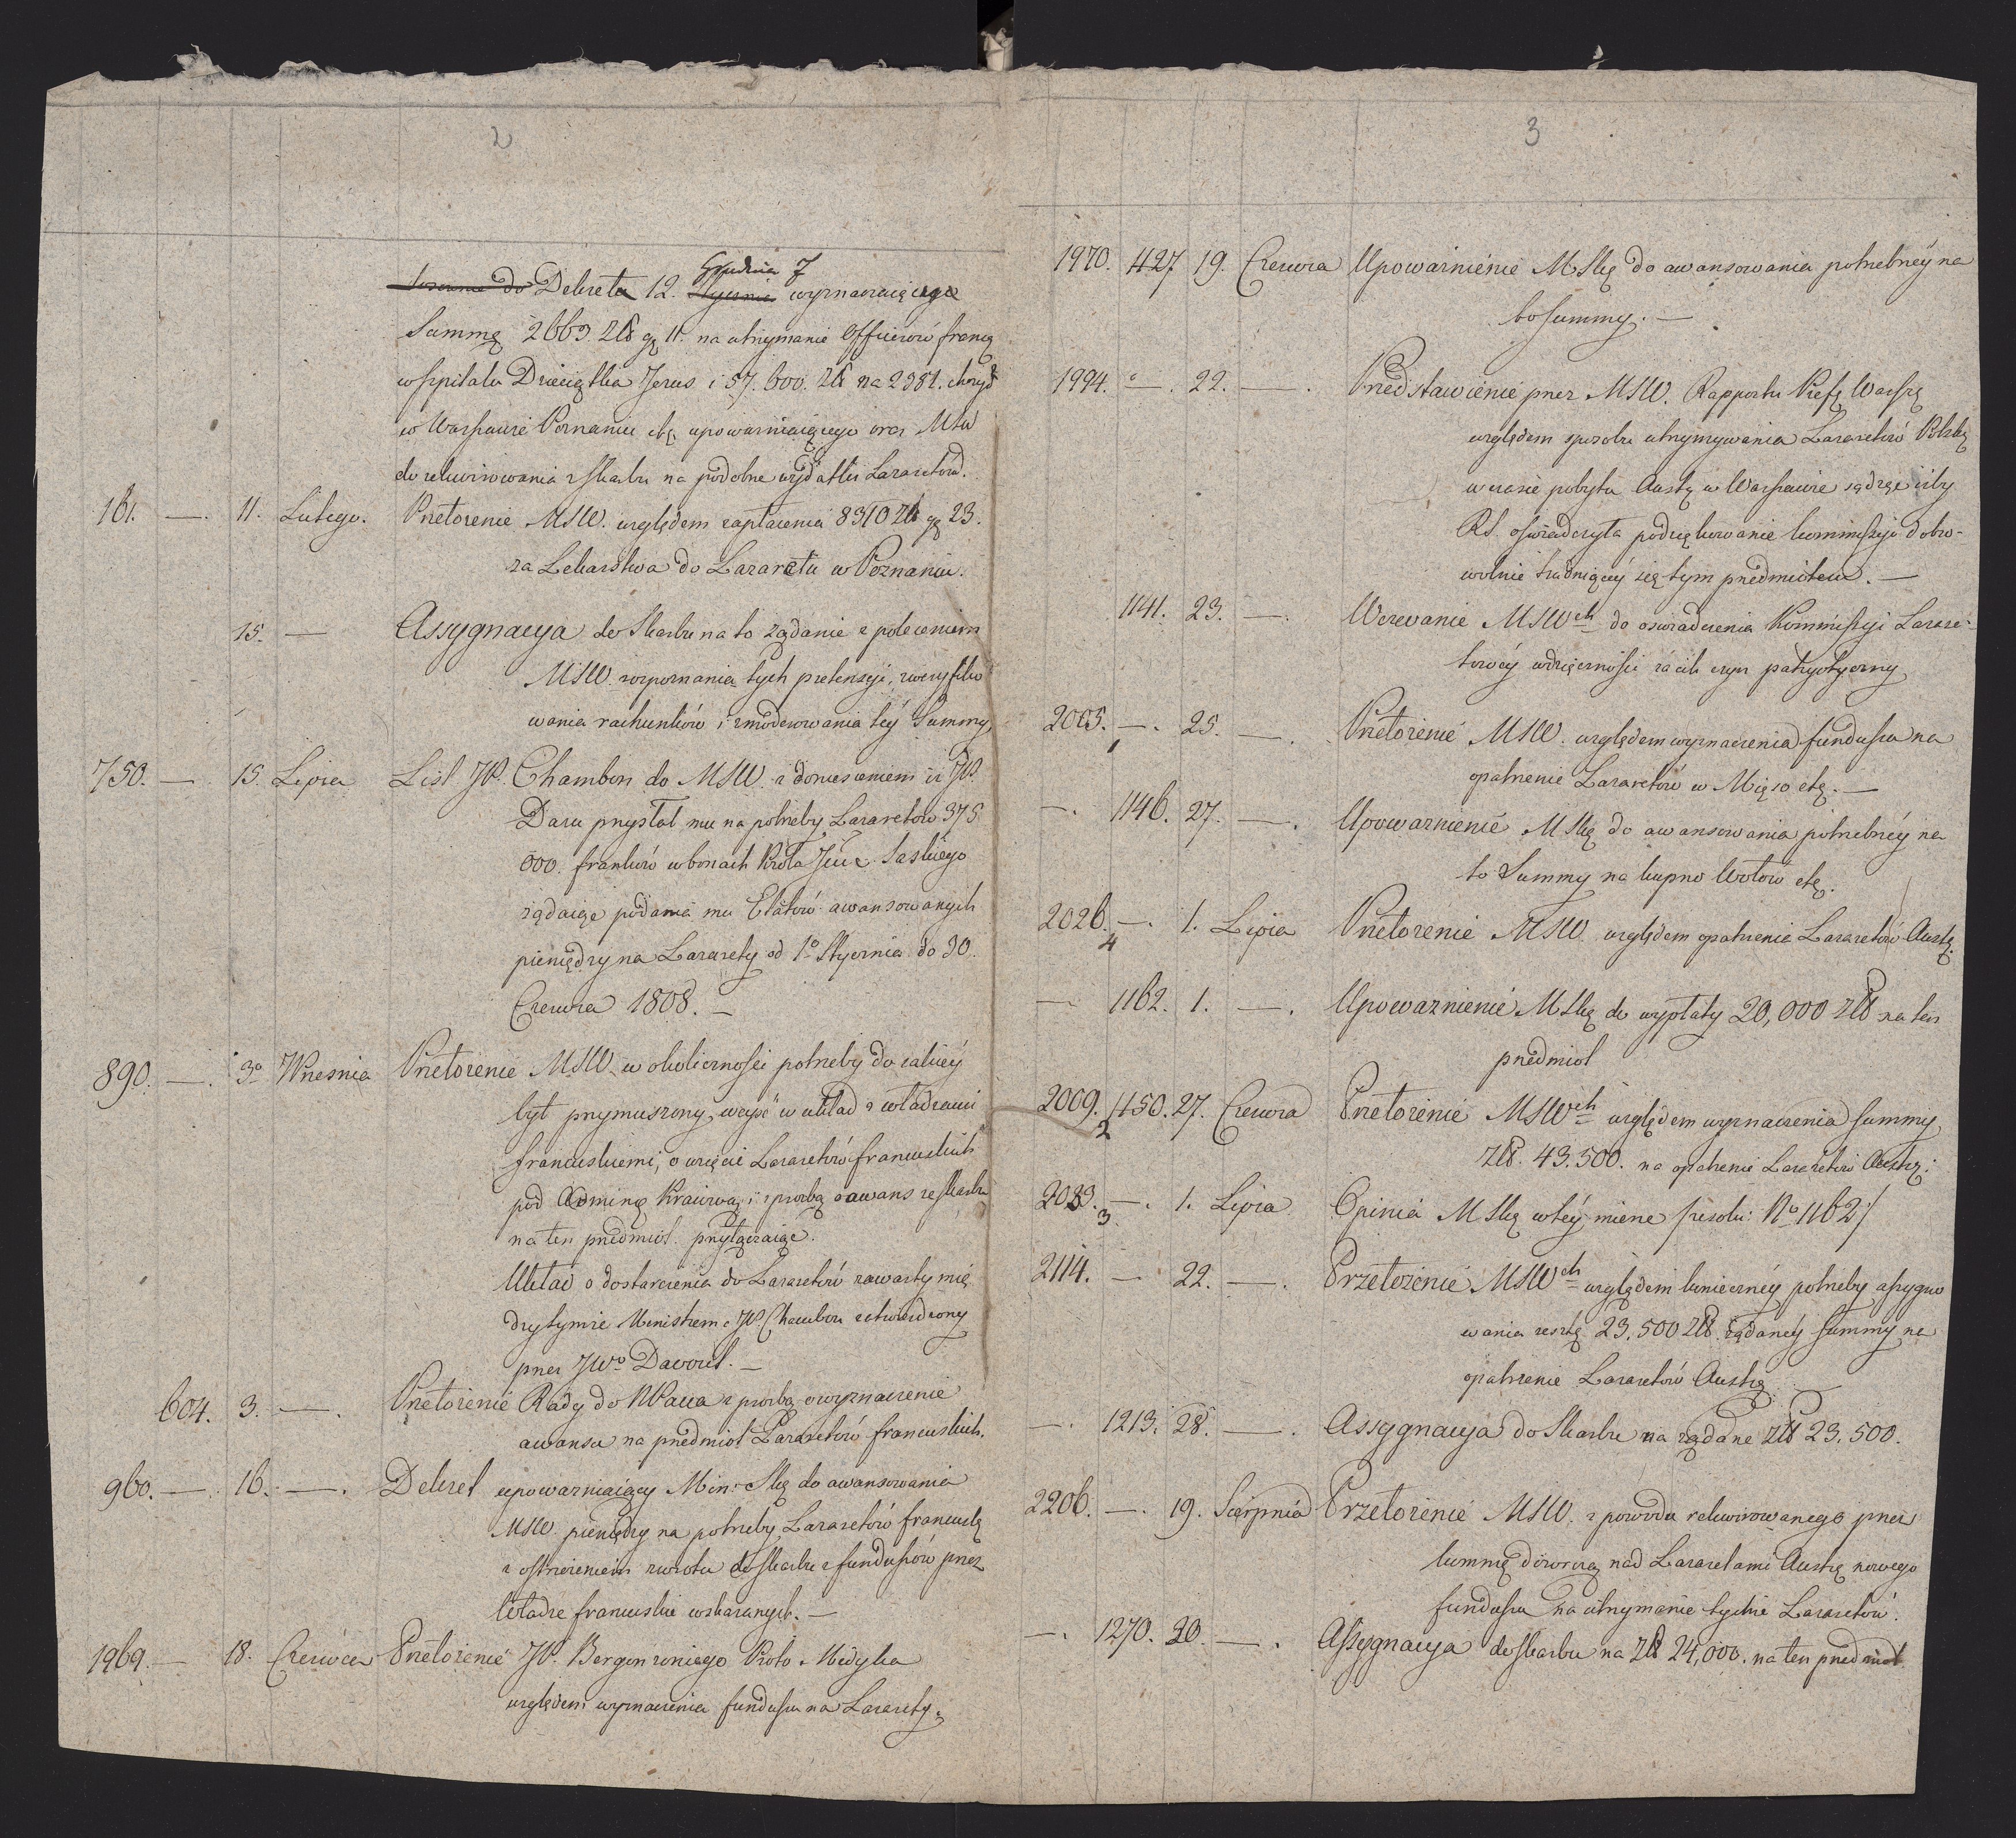 2
Grudnia 7
stosownie do Dekreta 12. Stycznia wyznaczaiącego
Summę 2669. Złł gę 11. na utrzymanie Officierów francę
w szpitalu Dzieciątka Jezus i 57.600. Złł na 2381. chorych
w Warszawie Poznaniu etę upoważniaiącego oraz MSW
do rekwirowania z Skarbu na podobne wydatki Lazaretów.
161. — 11. Lutego. Przełożenie MSW. względem zapłacenia 8310 Złł gę 23.
za Lekarstwa do Lazaretu w Poznaniu.
15. — Assygnacya do Skarbu na to żądanie z poleceniem
MSW. rozpoznania tych pretensyi, zweryfiko
wania rachunków i zmoderowania tey Summy,
750. — 15. Lipca List JP. Chambon do MSW. z doniesieniem iż JP.
Daru przysłał mu na potrzeby Lazaretów 375
000. franków w bonach Króla Jmć. Saskiego
żądaiąc podania mu Etatów awansowanych
pieniędzy na Lazarety od 1º Stycznia do 30.
Czerwca 1808. —
890. — 3º Wrzesnia Przełożenie MSW. w okoliczności potrzeby do iakiey
był przymuszony, weyść w układ z władzami
francuskiemi, o wzięcie Lazaretów francuskich
pod Adminę Kraiową i z prozbą o awans ze skarbu
na ten przedmiot. przyłączaiąc.
Układ o dostarczenia do Lazaretów zawarty mię
dzy tymże Ministrem a JP. Chambon zatwierdzony
przez JWº Davout. —
604. 3. — Przełożenie Rady do NPana z prozbą o wyznaczenie
awansu na przedmiot Lazaretów francuskich.
960. — 16. — Dekret upoważniaiący Min: Skę do awansowania
MSW. pieniędzy na potrzeby Lazaretów francuskę
z ostrzeżeniem zwrotu do skarbu z funduszów przez
Władze francuskie wskazanych. —
1969. — 18. Czerwca Przełożenie JP. Bergonzoniego Proto-Medyka
względem wyznaczenia funduszu na Lazarety.
3
1970. 1127 19. Czerwca Upoważnienie MSkę do awansowania potrzebney na
to summy. —
1994. — 22. — Przedstawienie przez MSW. Rapportu Prefę Warszę
względem sposobu utrzymywania Lazaretów Polskę
w czasie pobytu Austę w Warszawie sądząc iżby
RS. oświadczyła podziękowanie kommissyi dobro-
wolnie trudniącey się tym przedmiotem. —
1141. 23. — Wezwanie MSWch do oswiadczenia Kommissyi Lazare-
towey wdzięczności za ich czyn patryotyczny
2005. — 25. — Przełożenie MSW. względem wyznaczenia funduszu na
1
opatrzenie Lazaretów w Mięso etę. —
— 1146. 27. — Upoważnienie MSkę do awansowania potrzebney na
to Summy na kupno Wołów etę.
2026. — 1. Lipca Przełożenie MSW. względem opatrzenia Lazaretów Austę.
4
— 1162. 1. — Upoważnienie MSkę do wypłaty 20,000 złł na ten
przedmiot
2009. 1150. 27. Czerwca Przełożenie MSWch względem wyznaczenia summy
2
Złł. 43.500. na opatrzenie Lazaretów Austę:
2033. — 1. Lipca Opinia MSkę w tey mierze /rezolu: Nº 1162/
3
2114. — 22. — Przełożenie MSWch względem konieczney potrzeby assygno
wania resztę 23.500 Złł. żądaney summy na
opatrzenie Lazaretów Austę
— 1213. 28. — Assygnacya do Skarbu na żądane złł 23.500.
2206. — 19. Sierpnia Przełożenie MSW. z powodu rekwirowanego przez
kommę dozorczą nad Lazaretami Austę nowego
funduszu na utrzymanie tychże Lazaretów.
— 1270. 20. — Assygnacya do skarbu na Złł 24,000. na ten przedmiot